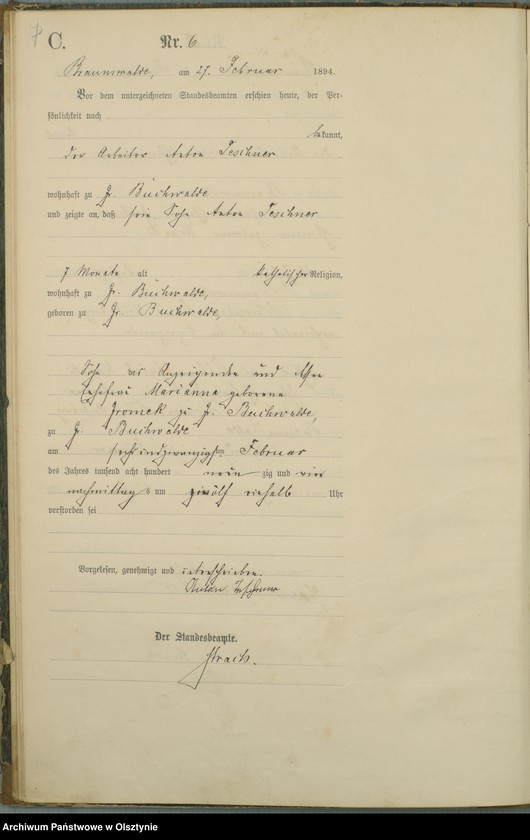 7 C. Nr. 6
Braunswalde, am 27. Februar 1894.
Vor dem unterzeichneten Standesbeamten erschien heute, der Per-
sönlichkeit nach
bekannt,
der Arbeiter Anton Teschner
wohnhaft zu Gr. Buchwalde
und zeigte an, daß sein Sohn Anton Teschner
7 Monate alt katholischer Religion,
wohnhaft zu Gr. Buchwalde,
geboren zu Gr. Buchwalde,
Sohn des Anzeigenden und dessen
Ehefrau Marianna geborene
Gromek zu Gr. Buchwalde,
zu Gr. Buchwalde
am sechsundzwanzigsten Februar
des Jahres tausend acht hundert neun zig und vier
nachmittags um zwölf einhalb Uhr
verstorben sei
Vorgelesen, genehmigt und unterschrieben.
Anton Teschner
Der Standesbeamte.
Archiwum Państwowe w Olsztynie